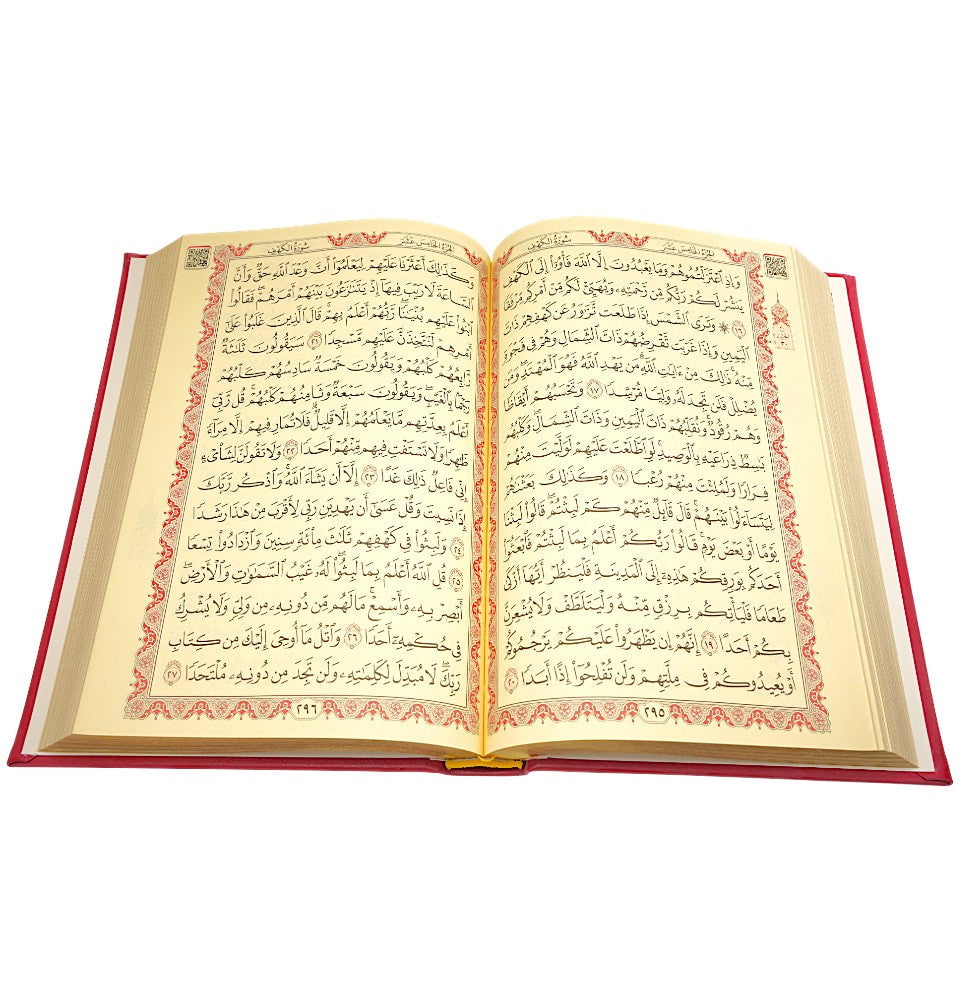 سُورَةُ الكَهْفِ
الجُزْءُ الخَامِسَ عَشَرَ
وَإِذِ ٱعْتَزَلْتُمُوهُمْ وَمَا يَعْبُدُونَ إِلَّا ٱللَّهَ فَأْوُۥٓا۟ إِلَى ٱلْكَهْفِ
يَنشُرْ لَكُمْ رَبُّكُم مِّن رَّحْمَتِهِۦ وَيُهَيِّئْ لَكُم مِّنْ أَمْرِكُم مِّرْفَقًا
١٦ ۞ وَتَرَى ٱلشَّمْسَ إِذَا طَلَعَت تَّزَٰوَرُ عَن كَهْفِهِمْ ذَاتَ
ٱلْيَمِينِ وَإِذَا غَرَبَت تَّقْرِضُهُمْ ذَاتَ ٱلشِّمَالِ وَهُمْ فِى فَجْوَةٍ
مِّنْهُ ۚ ذَٰلِكَ مِنْ ءَايَٰتِ ٱللَّهِ ۗ مَن يَهْدِ ٱللَّهُ فَهُوَ ٱلْمُهْتَدِ ۖ وَمَن
يُضْلِلْ فَلَن تَجِدَ لَهُۥ وَلِيًّا مُّرْشِدًا ١٧ وَتَحْسَبُهُمْ أَيْقَاظًا
وَهُمْ رُقُودٌ ۚ وَنُقَلِّبُهُمْ ذَاتَ ٱلْيَمِينِ وَذَاتَ ٱلشِّمَالِ ۖ وَكَلْبُهُم
بَٰسِطٌ ذِرَاعَيْهِ بِٱلْوَصِيدِ ۚ لَوِ ٱطَّلَعْتَ عَلَيْهِمْ لَوَلَّيْتَ مِنْهُمْ
فِرَارًا وَلَمُلِئْتَ مِنْهُمْ رُعْبًا ١٨ وَكَذَٰلِكَ بَعَثْنَٰهُمْ
لِيَتَسَآءَلُوا۟ بَيْنَهُمْ ۚ قَالَ قَآئِلٌ مِّنْهُمْ كَمْ لَبِثْتُمْ ۖ قَالُوا۟ لَبِثْنَا
يَوْمًا أَوْ بَعْضَ يَوْمٍ ۚ قَالُوا۟ رَبُّكُمْ أَعْلَمُ بِمَا لَبِثْتُمْ فَٱبْعَثُوٓا۟
أَحَدَكُم بِوَرِقِكُمْ هَٰذِهِۦٓ إِلَى ٱلْمَدِينَةِ فَلْيَنظُرْ أَيُّهَآ أَزْكَىٰ
طَعَامًا فَلْيَأْتِكُم بِرِزْقٍ مِّنْهُ وَلْيَتَلَطَّفْ وَلَا يُشْعِرَنَّ
بِكُمْ أَحَدًا ١٩ إِنَّهُمْ إِن يَظْهَرُوا۟ عَلَيْكُمْ يَرْجُمُوكُمْ
أَوْ يُعِيدُوكُمْ فِى مِلَّتِهِمْ وَلَن تُفْلِحُوٓا۟ إِذًا أَبَدًا ٢٠
٢٩٥
سُورَةُ الكَهْفِ
الجُزْءُ الخَامِسَ عَشَرَ
وَكَذَٰلِكَ أَعْثَرْنَا عَلَيْهِمْ لِيَعْلَمُوٓا۟ أَنَّ وَعْدَ ٱللَّهِ حَقٌّ وَأَنَّ
ٱلسَّاعَةَ لَا رَيْبَ فِيهَآ إِذْ يَتَنَٰزَعُونَ بَيْنَهُمْ أَمْرَهُمْ ۖ فَقَالُوا۟
ٱبْنُوا۟ عَلَيْهِم بُنْيَٰنًا ۖ رَّبُّهُمْ أَعْلَمُ بِهِمْ ۚ قَالَ ٱلَّذِينَ غَلَبُوا۟ عَلَىٰٓ
أَمْرِهِمْ لَنَتَّخِذَنَّ عَلَيْهِم مَّسْجِدًا ٢١ سَيَقُولُونَ ثَلَٰثَةٌ
رَّابِعُهُمْ كَلْبُهُمْ وَيَقُولُونَ خَمْسَةٌ سَادِسُهُمْ كَلْبُهُمْ
رَجْمًۢا بِٱلْغَيْبِ ۖ وَيَقُولُونَ سَبْعَةٌ وَثَامِنُهُمْ كَلْبُهُمْ ۚ قُل رَّبِّىٓ
أَعْلَمُ بِعِدَّتِهِم مَّا يَعْلَمُهُمْ إِلَّا قَلِيلٌ ۗ فَلَا تُمَارِ فِيهِمْ إِلَّا مِرَآءً
ظَٰهِرًا وَلَا تَسْتَفْتِ فِيهِم مِّنْهُمْ أَحَدًا ٢٢ وَلَا تَقُولَنَّ لِشَا۟ىْءٍ
إِنِّى فَاعِلٌ ذَٰلِكَ غَدًا ٢٣ إِلَّآ أَن يَشَآءَ ٱللَّهُ ۚ وَٱذْكُر رَّبَّكَ
إِذَا نَسِيتَ وَقُلْ عَسَىٰٓ أَن يَهْدِيَنِ رَبِّى لِأَقْرَبَ مِنْ هَٰذَا رَشَدًا
٢٤ وَلَبِثُوا۟ فِى كَهْفِهِمْ ثَلَٰثَ مِا۟ئَةٍ سِنِينَ وَٱزْدَادُوا۟ تِسْعًا
٢٥ قُلِ ٱللَّهُ أَعْلَمُ بِمَا لَبِثُوا۟ ۖ لَهُۥ غَيْبُ ٱلسَّمَٰوَٰتِ وَٱلْأَرْضِ ۖ
أَبْصِرْ بِهِۦ وَأَسْمِعْ ۚ مَا لَهُم مِّن دُونِهِۦ مِن وَلِىٍّ وَلَا يُشْرِكُ
فِى حُكْمِهِۦٓ أَحَدًا ٢٦ وَٱتْلُ مَآ أُوحِىَ إِلَيْكَ مِن كِتَابِ
رَبِّكَ ۖ لَا مُبَدِّلَ لِكَلِمَٰتِهِۦ وَلَن تَجِدَ مِن دُونِهِۦ مُلْتَحَدًا ٢٧
٢٩٦